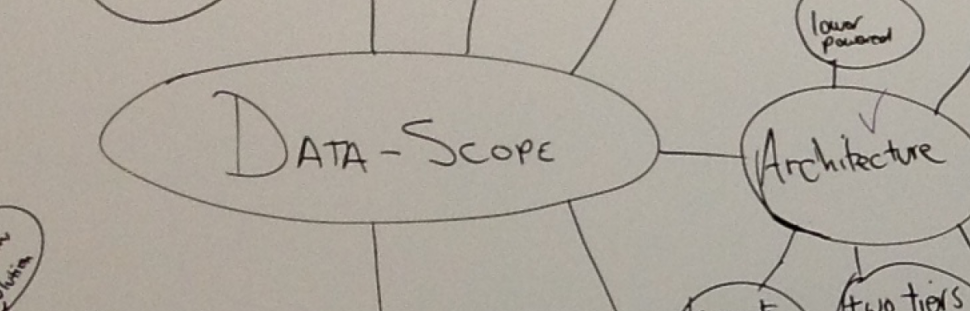 lower
powered
DATA-SCOPE
Architecture
two tiers